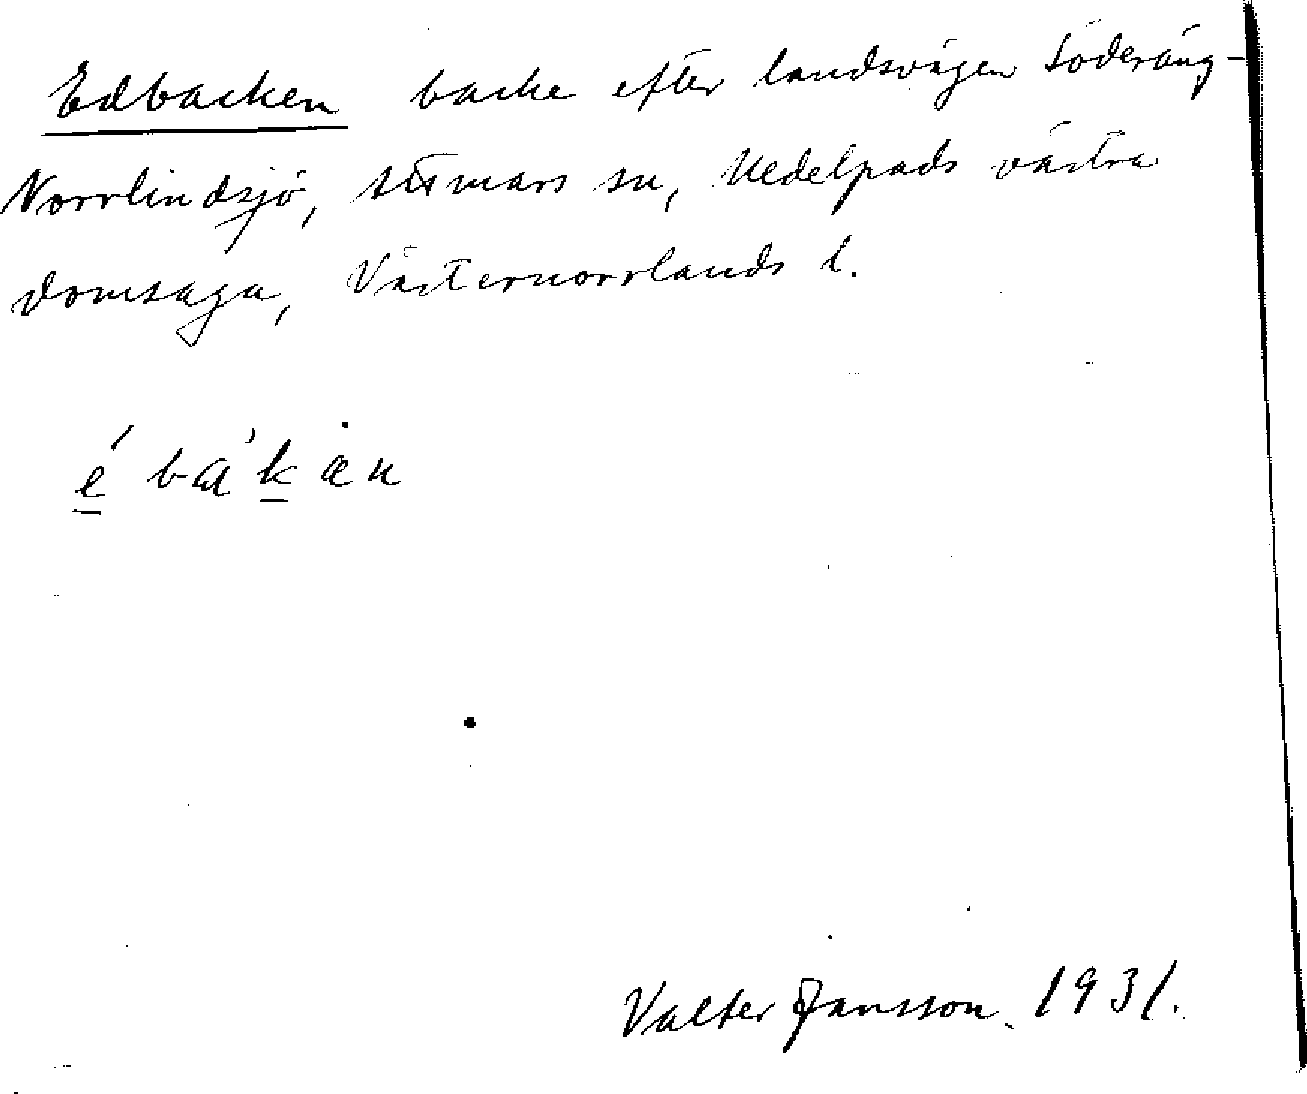 Edbacken backe efter landsvägen Söderäng -
Norrlindsjö, Attmars sn, Medelpads västra
domsaga, Västernorrlands l.
é bàkån
Valter Jansson. 1931.